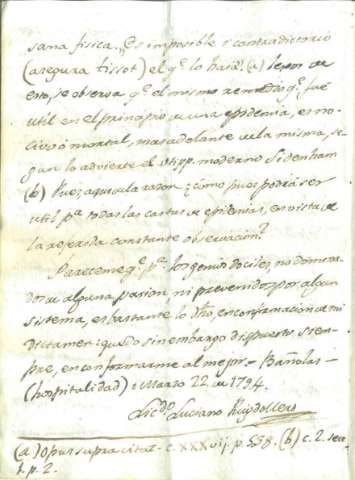 sana fisica. „Es imposible y contradictorio
(asegura tissot) el qᵉ lo haia. (a) lexos de
esto, se observa qᵉ el mismo remedio qᵉ fue
util en el principio de una epidemia, es no-
civo ó mortal, mas adelante de la misma, se-
gun lo advierte el moderno Sidenham
(b) Pues aqui de la razon: ¿cómo pues podrá ser
util pᵃ todas las castas de epidemias, en vista de
la referida constante observacion?
Pareceme qᵉ pᵃ los genios dociles, no domina-
dos de alguna pasion, ni prevenidos por algun
sistema, es bastante lo dho, en confirmacion de mi
dictamen: quedo sin embargo dispuesto siem-
pre, en conformarme al mejor.- Bañolas
(hospitalidad) Marzo 22 de 1794.
Licdᵒ Luciano
(a) Opus supra citat. c. XXXvij. p. 558. (b) c. 2. sect.
t. p. 2.